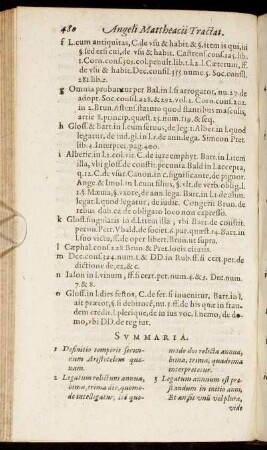 480 Angeli Mattheacii Tractat.
f L. cum antiquitas, C. de vsu & habit. & §. item is qui, in
§ sed etsi cui, de vsu & habit. Castrens. cons. 145. lib.
1. Corn. cons. 305. col. penult. lib. 1. & l. Cæterum, ff.
de vsu & habit. Dec. consil. 355. nume. 5. Soc. consil.
281. lib. 2.
g Omnia probantur per Bal. in l. si arrogator, nu. 27. de
adopt. Soc. consil. 248. & 252. vol. 2. Corn. cons. 202.
in 2. Brun. Astens. statuto quod stantib. masculis,
artic. 8. princip. quæst. 23. num. 119. & seq.
h Gloss. & Bart. in l. cum seruus, de leg. 1. Alber. in l. quod
legatur, de iudg. & in l. de ann. lega. Simeon Pret.
lib. 4. Interpret. pag. 400.
i Alberic. in l. 2. col. vlt. C. de iure emphyt. Bart. in l. item
illa, vbi gloss. de constit. pecunia Bald. in l. accepta,
q. 12. C. de vsur. Canon. in c. significante, de pignor.
Ange. & Imol. in l. cum filius, § vlt. de verb. oblig. l.
1. §. Mæuia, §. vxore, de ann. lega. Bart. in l. 2. de alim.
legat. l. quod legatur, de iudic. Congeri. Brun. de
rebus dub. ex de obligato loco non expresso.
k Gloss. singularis in d. l. item illa, vbi Bart. de constit.
pecun. Pect. Vbald. de societ. 9. parte quæst. 14. Bart. in
l. suo victu, ff. de oper. libert. Brun. vt supra.
l Cæphal. cons. 128. Brun. & Pet. locis citatis.
m Dec. cons. 124. num. 4. & DD. in Rub. ff. si cert. per. de
dictione, de, ex, & c.
n Iason l. in l. vinum, ff. si cert. pet. num. 4. & 5. Dec. num.
7. & 8.
o Gloss. in l. dies festos, C. de fer. si inuenitur, Bart. in l.
ait prætor, §. si debitor, num. 2. ff. de his quæ in fraudem
credit. l. plerique, de in ius voc. l. nemo, de domo,
vbi DD. de reg. iur.
SVMMARIA.
1 Definitio temporis secundum
Aristotelem quænam.
2 Legatum relictum annua,
bima, trima die, quomodo
intellegatur, ita quomodo
dos relicta annua,
bima, trima, quadrima
interpretetur.
3 Legatum annuum est præstandum
in initio anni,
Et an sis vnũ vel plura,
vide